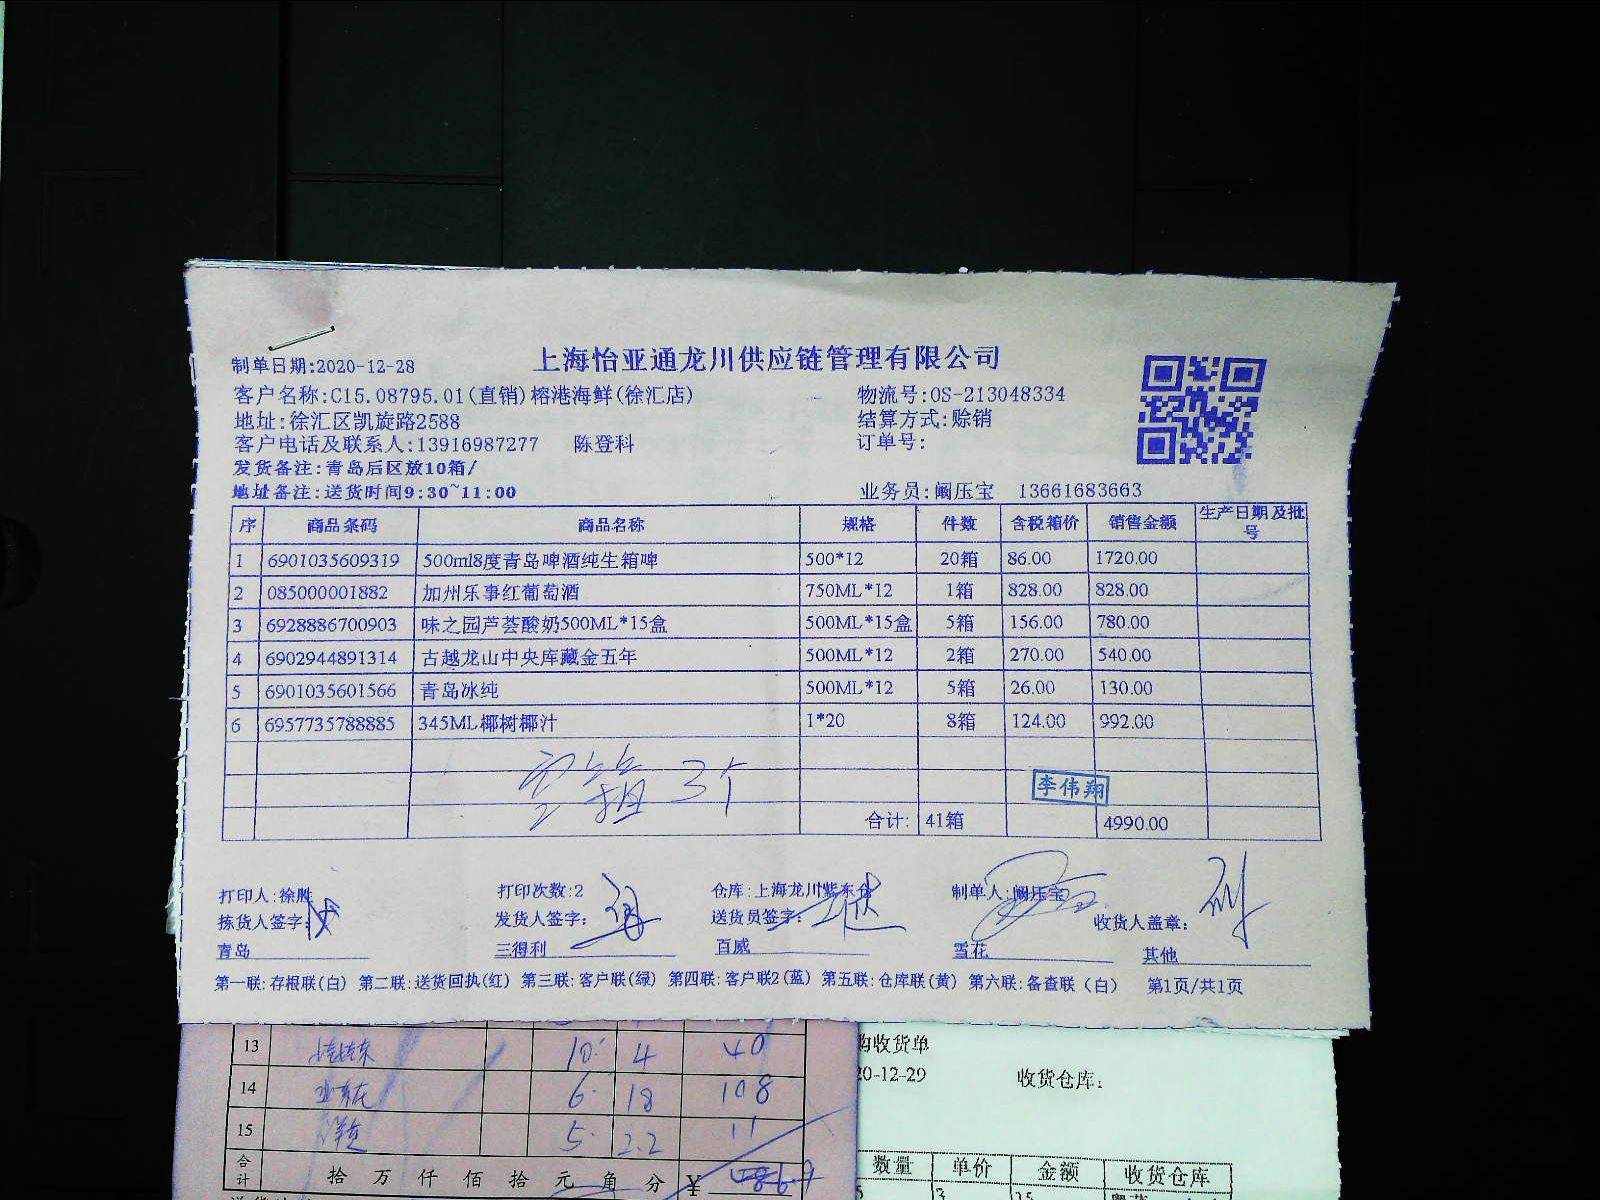 上海怡亚通龙川供应链管理有限公司
制单日期:2020-12-28
客户名称:C15.08795.01(直销)榕港海鲜(徐汇店) 物流号:OS-213048334
地址:徐汇区凯旋路2588 结算方式:赊销
客户电话及联系人:13916987277 陈登科 订单号:
发货备注:青岛后区放10箱/
地址备注:送货时间9:30~11:00 业务员:阚压宝 13661683663
序 商品条码 商品名称 规格 件数 含税箱价 销售金额 生产日期及批号
1 6901035609319 500ml8度青岛啤酒纯生箱啤 500*12 20箱 86.00 1720.00
2 085000001882 加州乐事红葡萄酒 750ML*12 1箱 828.00 828.00
3 6928886700903 味之园芦荟酸奶500ML*15盒 500ML*15盒 5箱 156.00 780.00
4 6902944891314 古越龙山中央库藏金五年 500ML*12 2箱 270.00 540.00
5 6901035601566 青岛冰纯 500ML*12 5箱 26.00 130.00
6 6957735788885 345ML椰树椰汁 1*20 8箱 124.00 992.00
3个
李伟翔
合计: 41箱 4990.00
打印人:徐胜 打印次数:2 仓库:上海龙川紫东仓 制单人:阚压宝
拣货人签字: 发货人签字: 送货员签字: 收货人盖章:
青岛 三得利 百威 雪花 其他
第一联:存根联(白) 第二联:送货回执(红) 第三联:客户联(绿) 第四联:客户联2(蓝) 第五联:仓库联(黄) 第六联:备查联(白) 第1页/共1页
13 10 4 40
14 6 18 108
15 5 2.2 11
合计 拾 万 仟 佰 拾 元 角 分 ¥
购收货单
20-12-29 收货仓库:
数量 单价 金额 收货仓库
5 3 15